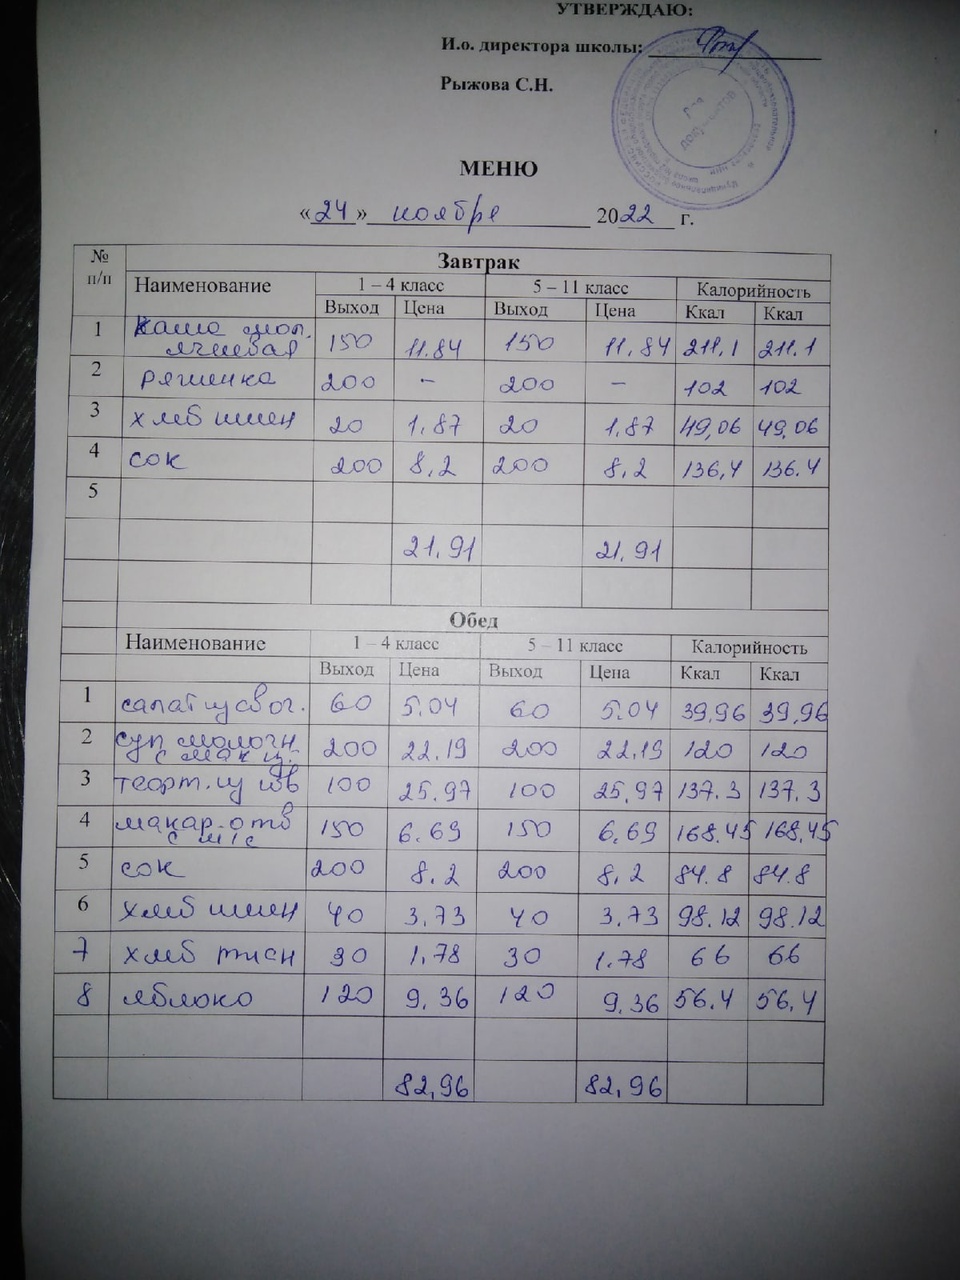 УТВЕРЖДАЮ:
И.о. директора школы:
Рыжова С.Н.
Для документов
МЕНЮ
«24» ноября 2022 г.
№ п/п Завтрак
Наименование 1 – 4 класс 5 – 11 класс Калорийность
Выход Цена Выход Цена Ккал Ккал
1 Каша мол. ячневая 150 11.84 150 11,84 211,1 211.1
2 ряженка 200 – 200 – 102 102
3 хлеб пшен 20 1,87 20 1,87 49,06 49,06
4 сок 200 8,2 200 8,2 136,4 136.4
5
21,91 21,91
Обед
Наименование 1 – 4 класс 5 – 11 класс Калорийность
Выход Цена Выход Цена Ккал Ккал
1 салат из св ог. 60 5.04 60 5.04 39,96 39,96
2 суп молочн с мак из. 200 22,19 200 22,19 120 120
3 100 25,97 100 25,97 137.3 137,3
4 макар. отв с м/с 150 6.69 150 6.69 168.45 168,45
5 сок 200 8,2 200 8,2 84.8 84.8
6 хлеб пшен 40 3,73 40 3,73 98.12 98.12
7 хлеб ржан 30 1,78 30 1.78 66 66
8 яблоко 120 9,36 120 9,36 56.4 56,4
82,96 82,96